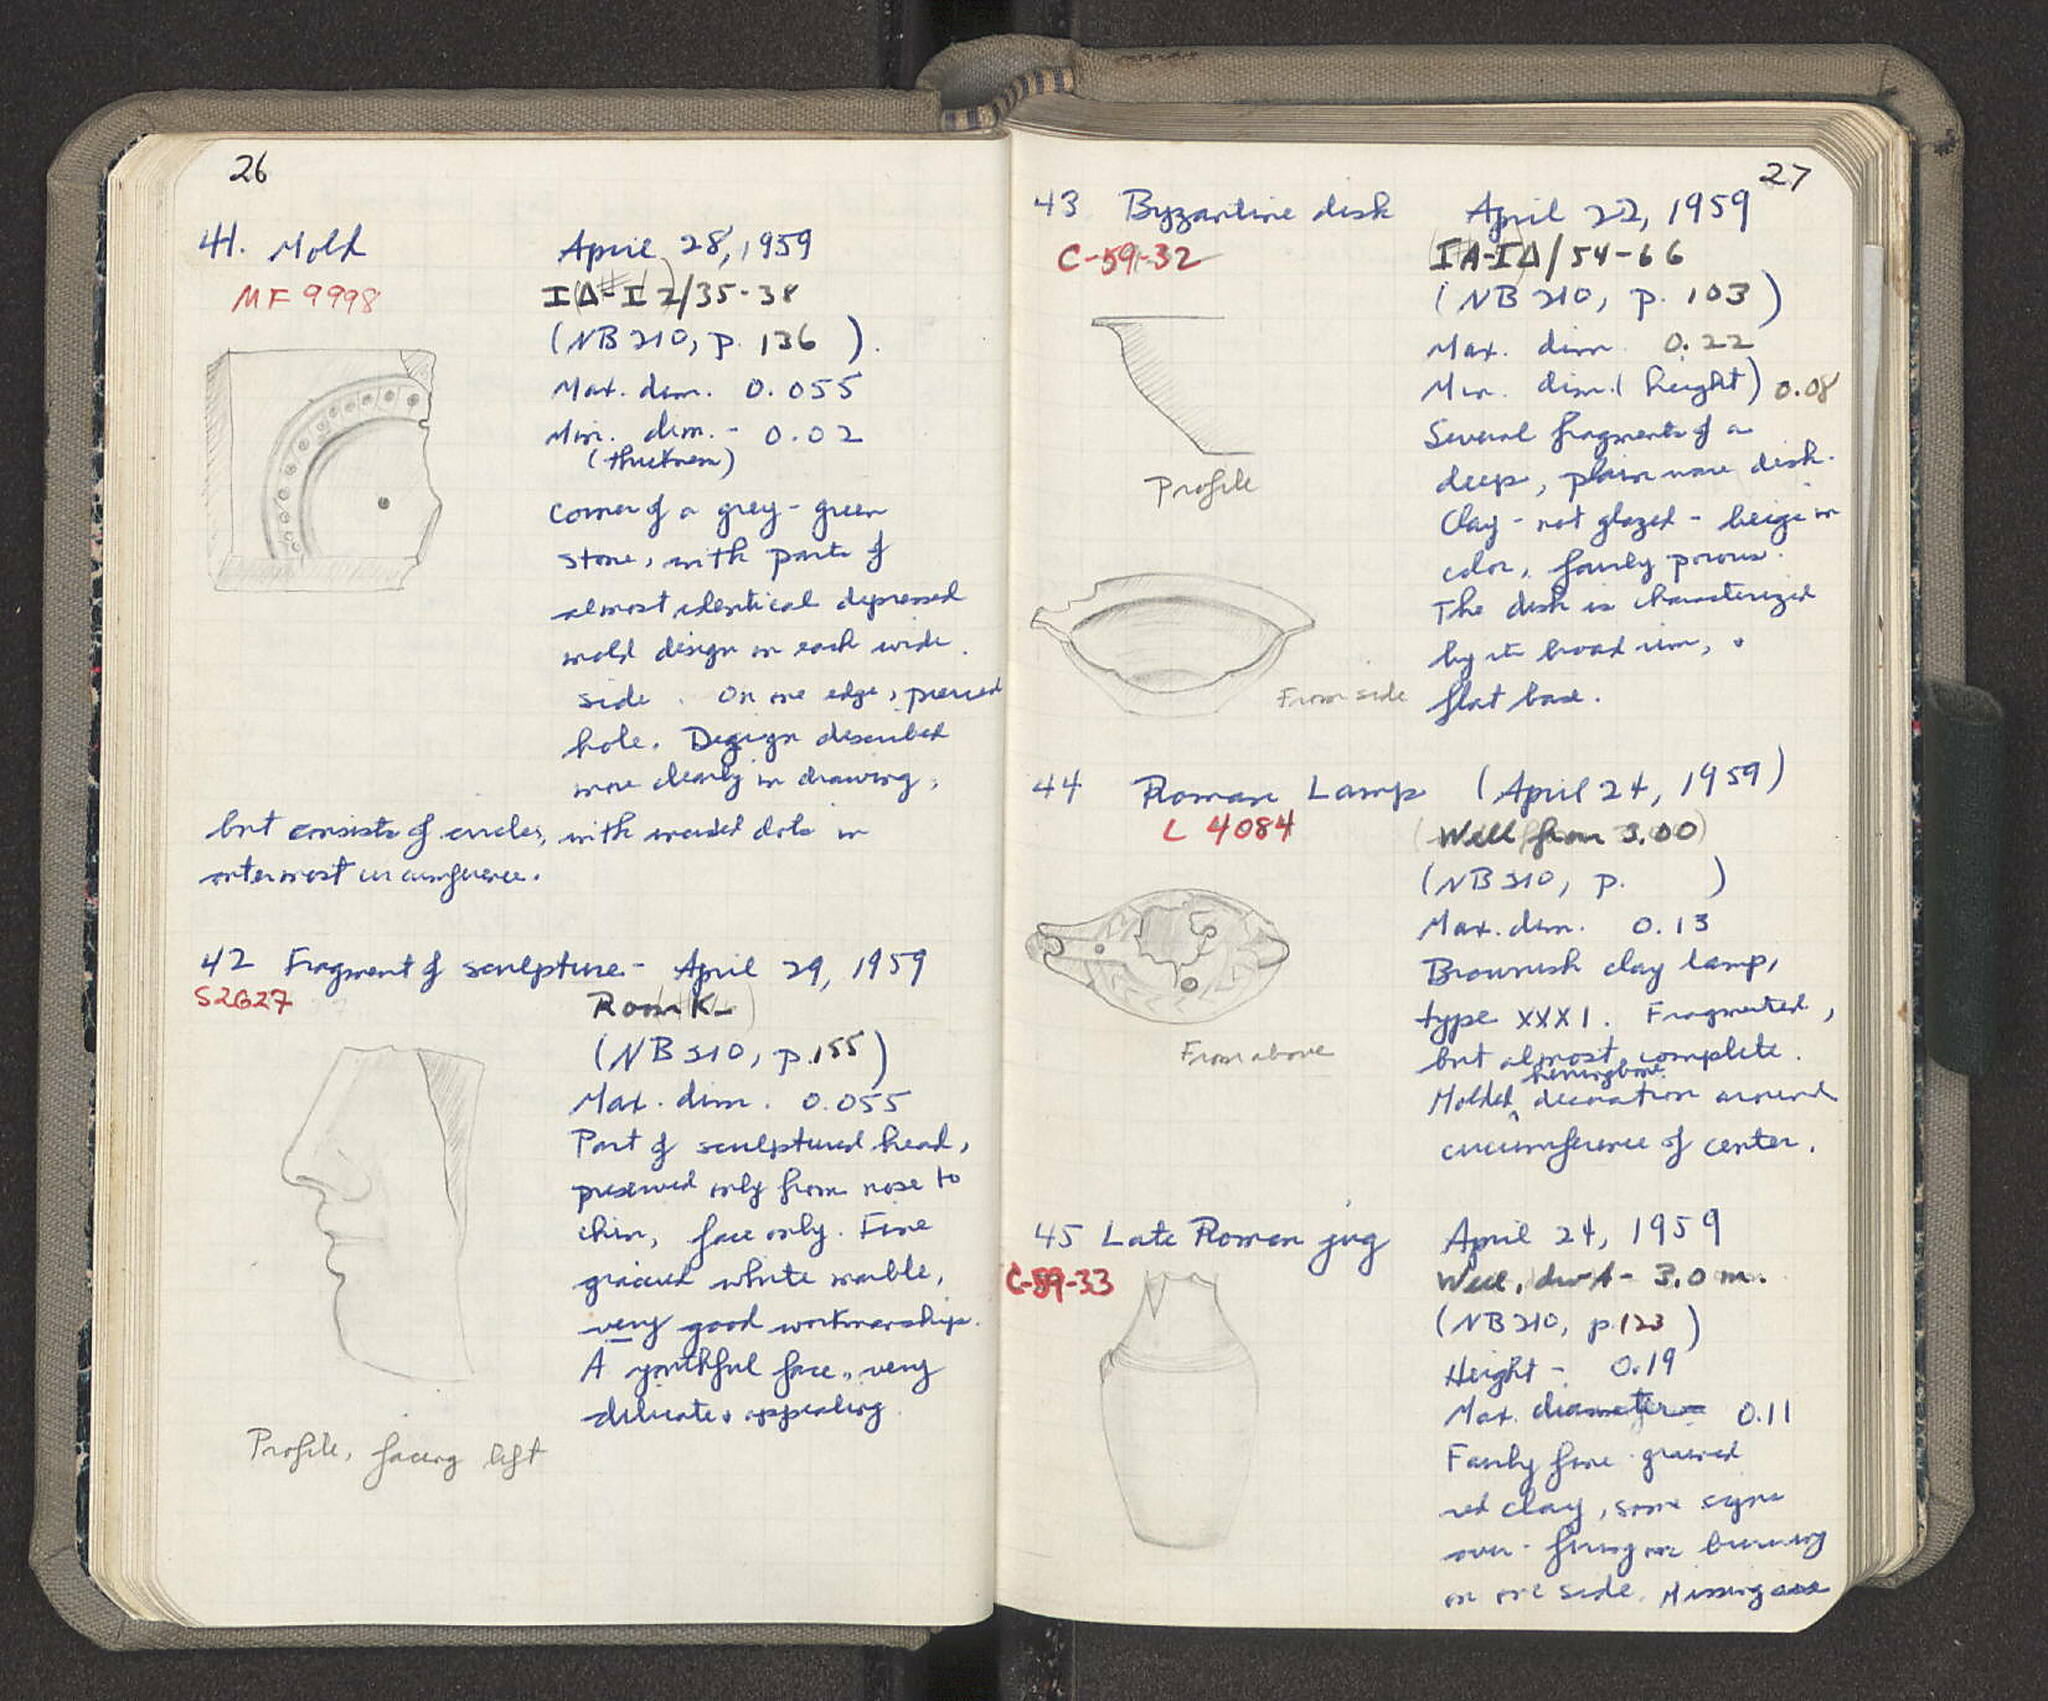 26
41. Mold April 28, 1959
MF 9998 IΔ-I2/35-38
(NB 210, p. 136 ).
Max. dim. 0.055
Min. dim. - 0.02
(thickness)
Corner of a grey-green
stone, with parts of
almost identical depressed
mold design on each wide
side. On one edge, pierced
hole. Design described
more clearly in drawing,
but consists of circles, with incised dots in
outermost circumference.
42 Fragment of sculpture - April 29, 1959
S2627 Room K
(NB 210, p. 155)
Max. dim. 0.055
Part of sculptured head,
preserved only from nose to
chin, face only. Fine
grained white marble,
very good workmanship.
A youthful face, very
delicate & appealing.
Profile, facing left
27
43 Byzantine dish April 22, 1959
C-59-32 IA-IΔ/54-66
(NB 210, p. 103)
Max. dim. 0.22
Min. dim. (height) 0.08
Several fragments of a
deep, plain ware dish.
Clay - not glazed - beige in
color, fairly porous.
The dish is characterized
by its broad rim, &
flat base.
Profile
From side
44 Roman Lamp (April 24, 1959)
L 4084 Well from 3.00
(NB 210, p. )
Max. dim. 0.13
Brownish clay lamp,
type XXXI. Fragmented,
but almost complete.
herringbone
Molded decoration around
circumference of center.
From above
45 Late Roman jug April 24, 1959
C-59-33 Well, 3.0 m.
(NB 210, p. 123 )
Height - 0.19
Max. diameter 0.11
Fairly fine grained
red clay, some signs
over-firing or burning
on one side. Missing are